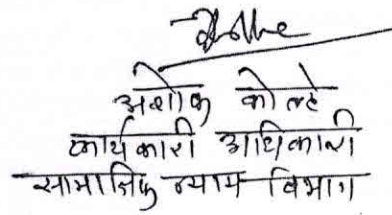 अशोक कोल्हे
कार्यकारी अधिकारी
सामाजिक न्याय विभाग